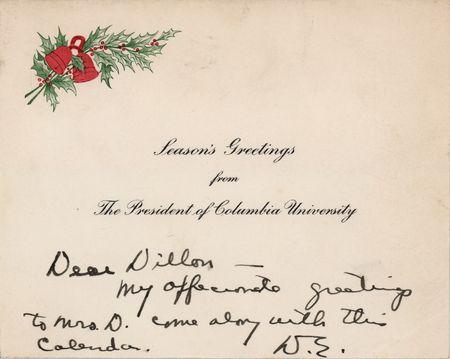 Season's Greetings
from
The President of Columbia University
Dear Dillon —
My affecionate greetings
to Mrs. D. come along with this
Calendar. D.E.